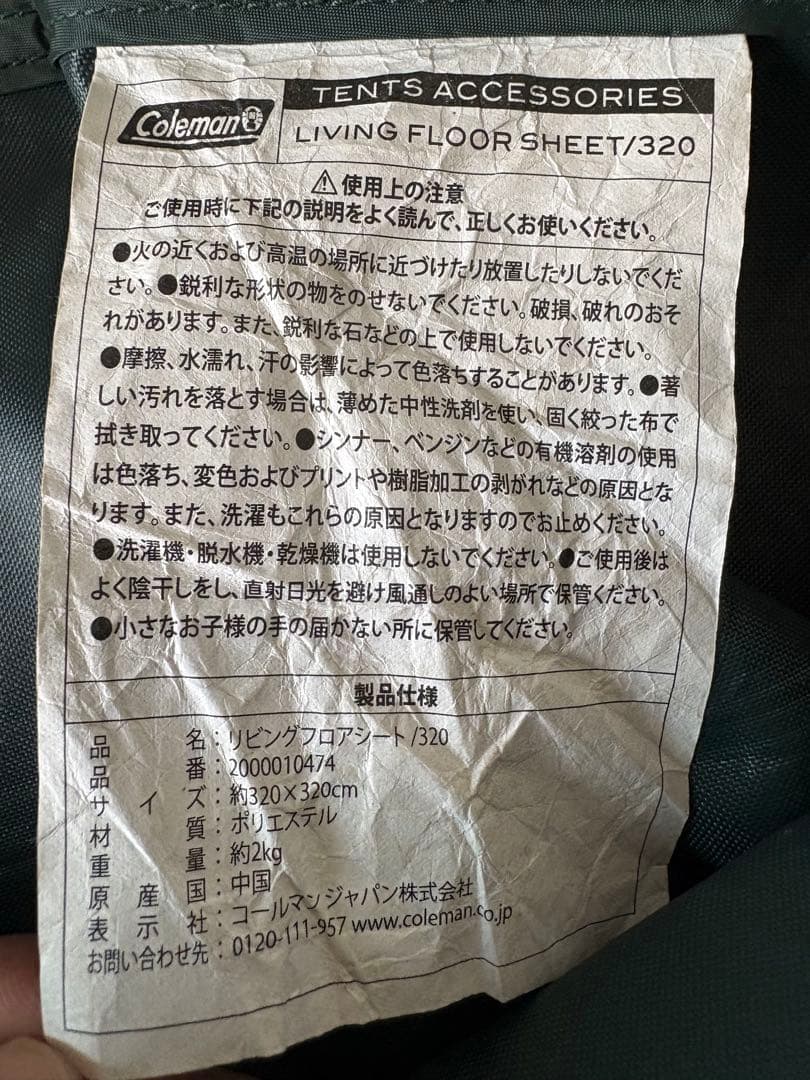 Coleman
TENTS ACCESSORIES
LIVING FLOOR SHEET/320
⚠使用上の注意
ご使用時に下記の説明をよく読んで、正しくお使いください。
●火の近くおよび高温の場所に近づけたり放置したりしないでくだ
さい。●鋭利な形状の物をのせないでください。破損、破れのおそ
れがあります。また、鋭利な石などの上で使用しないでください。
●摩擦、水濡れ、汗の影響によって色落ちすることがあります。●著
しい汚れを落とす場合は、薄めた中性洗剤を使い、固く絞った布で
拭き取ってください。●シンナー、ベンジンなどの有機溶剤の使用
は色落ち、変色およびプリントや樹脂加工の剥がれなどの原因とな
ります。また、洗濯もこれらの原因となりますのでお止めください。
●洗濯機・脱水機・乾燥機は使用しないでください。●ご使用後は
よく陰干しをし、直射日光を避け風通しのよい場所で保管ください。
●小さなお子様の手の届かない所に保管してください。
製品仕様
品名：リビングフロアシート/320
品番：2000010474
サイズ：約320×320cm
材質：ポリエステル
重量：約2kg
原産国：中国
表示社：コールマンジャパン株式会社
お問い合わせ先：0120-111-957 www.coleman.co.jp